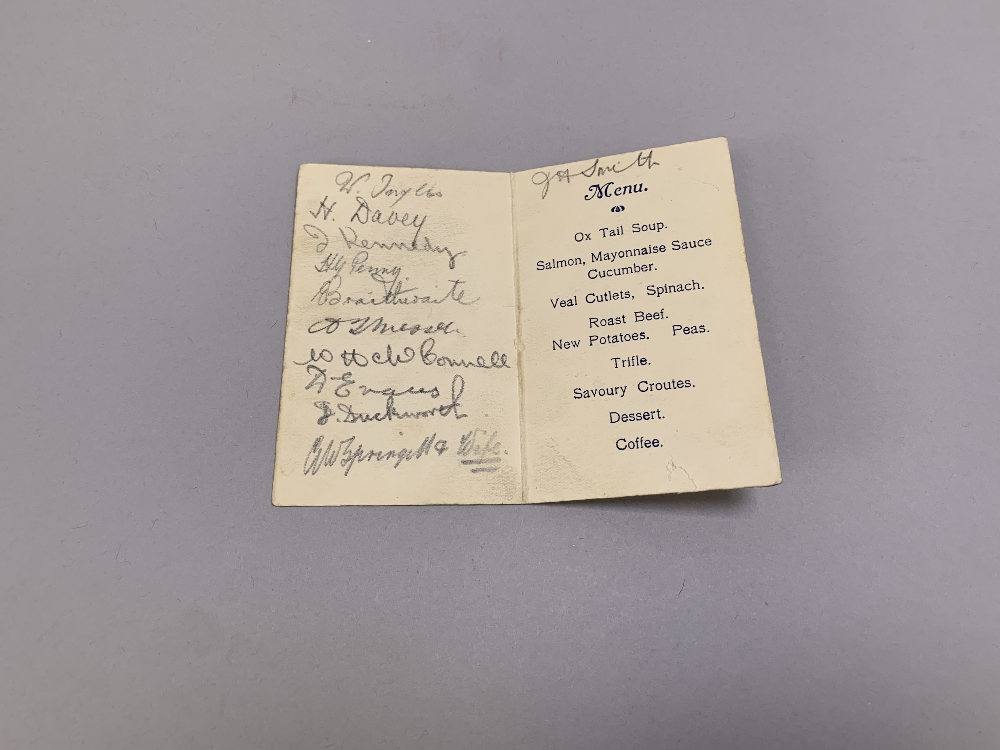 W. Inglis
H. Davey
J Kennedy
HG Penny
Braithwaite
W H McConnell
D Evans
J. Duckworth
Springett & Wife.
J H Smith
Menu.
Ox Tail Soup.
Salmon, Mayonnaise Sauce
Cucumber.
Veal Cutlets, Spinach.
Roast Beef.
New Potatoes. Peas.
Trifle.
Savoury Croutes.
Dessert.
Coffee.